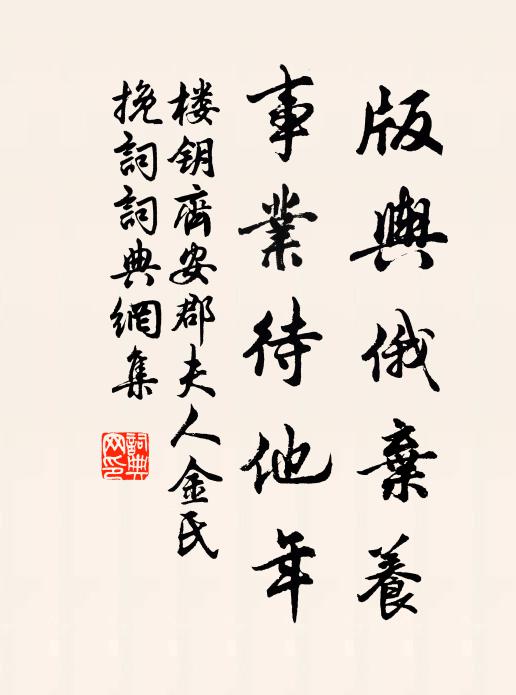 版輿俄棄養
事業待他年
楼钥齊安郡夫人金氏
挽詞詞典網集
詞典
网印